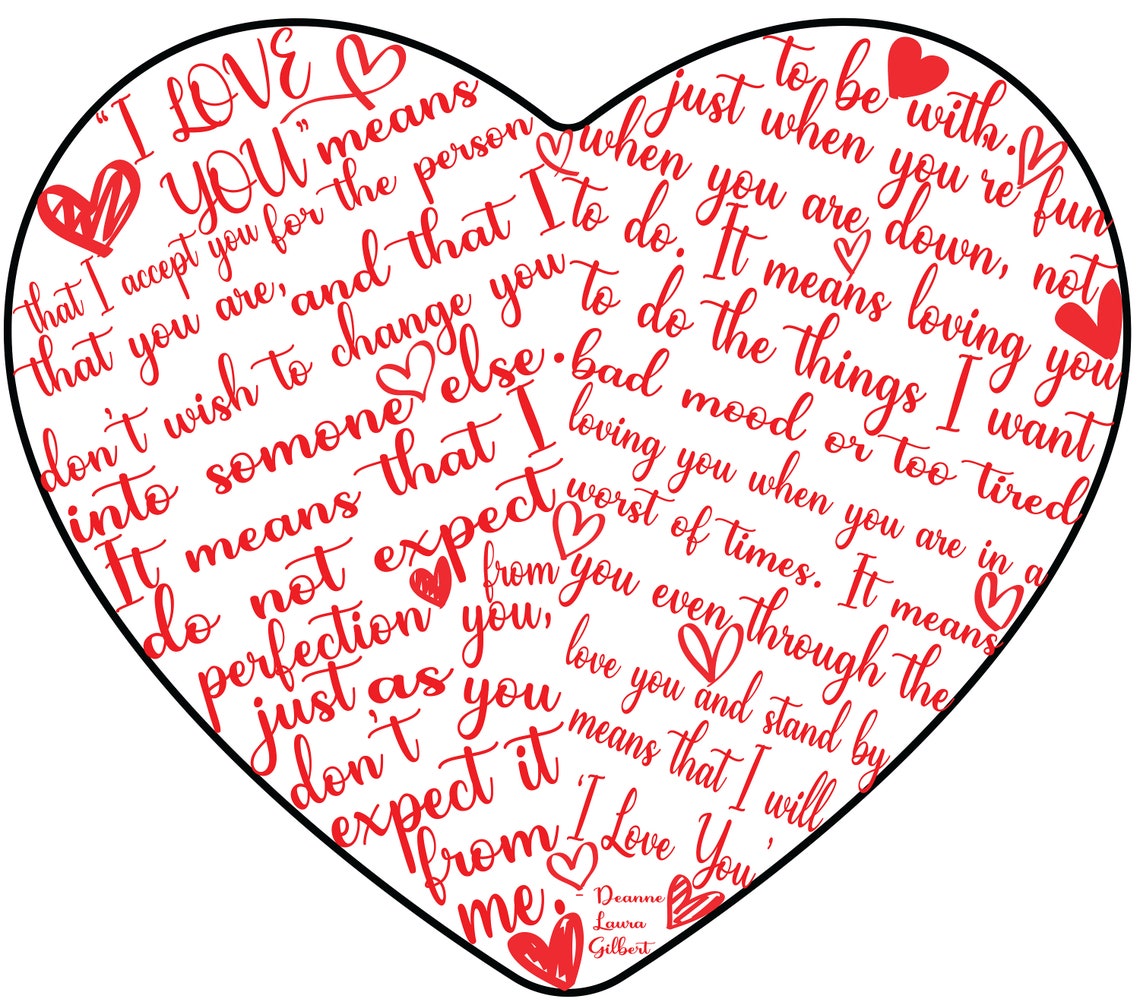 "I LOVE
YOU" means
that I accept you for the person
that you are, and that I
don't wish to change you
into somone else.
It means that I
do not expect
perfection from
just as you,
don't you
expect it
from
me.
'I Love You'
means that I will
love you and stand by
you even through the
worst of times. It means
loving you when you are in a
bad mood or too tired
to do the things I want
to do. It means loving you
when you are down, not
just when you're fun
to be with.
- Deanne
Laura
Gilbert